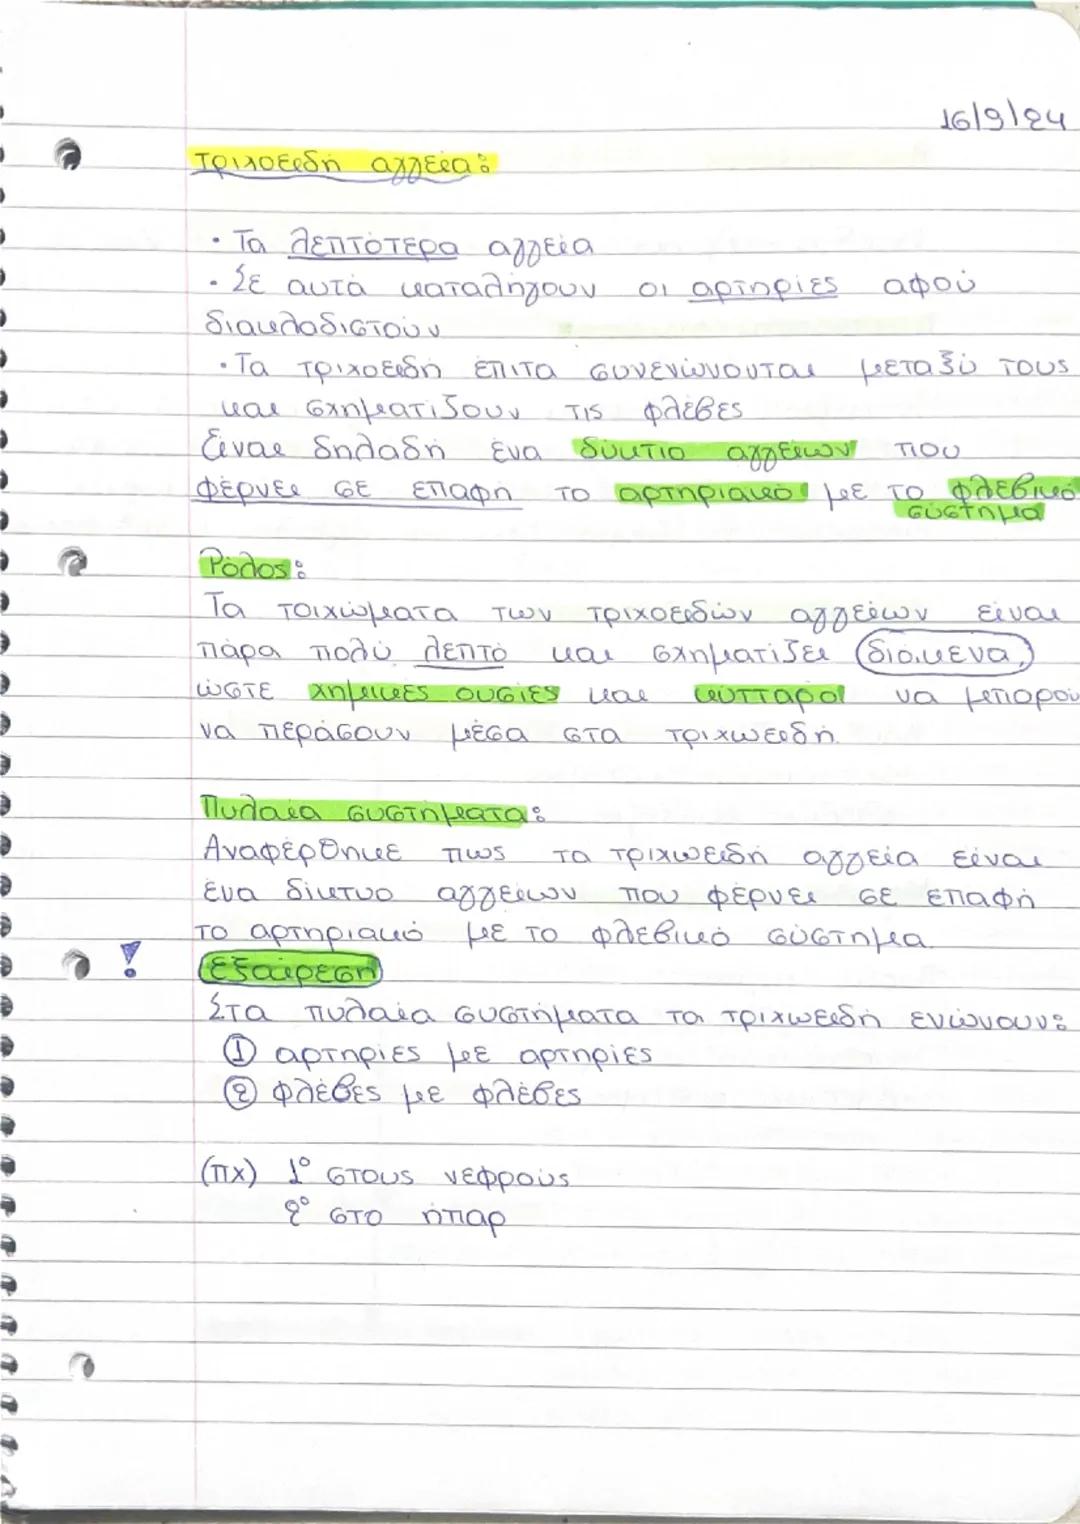 16/9/24
Τριχοειδή αγγεία:
· Τα λεπτότερα αγγεία
· Σε αυτά καταλήγουν οι αρτηρίες αφού
διακλαδιστούν
· Τα τριχοειδή έπιτα συνενώνουται μεταξύ τους
και σχηματίζουν τις φλέβες
Είναι δηλαδή ένα δύκτιο αγγείων που
φέρνει σε επαφή το αρτηριακό με το φλεβικό
σύστημα
Ρόλος:
Τα τοιχώματα των τριχοειδών αγγείων είναι
πάρα πολύ λεπτό και σχηματίζει διόμενα,
ώστε χημικές ουσίες και κύτταροι να μπορου
να περάσουν μέσα στα τριχωειδή.
Πυλαία συστήματα:
Αναφέρθηκε πως τα τριχωειδή αγγεία είναι
ένα δίκτυο αγγείων που φέρνει σε επαφή
το αρτηριακό με το φλεβικό σύστημα.
! εξαίρεση
Στα πυλαία συστήματα τα τριχωειδή ενώνουν:
① αρτηρίες με αρτηρίες
② φλέβες με φλέβες
(πχ) 1° στους νεφρούς
2° στο ήπαρ